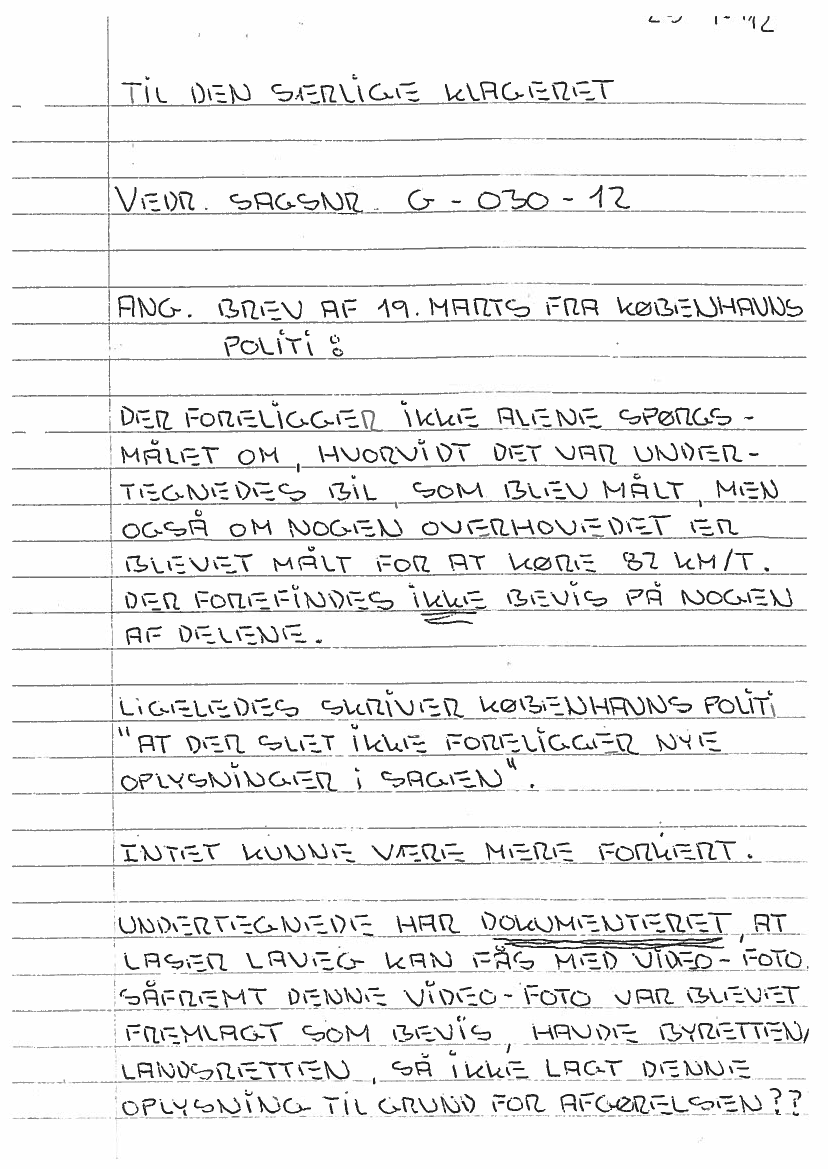 TIL DEN SÆRLIGE KLAGERET
VEDR. SAGSNR. G - 030 - 12
ANG. BREV AF 19. MARTS FRA KØBENHAVNS
POLITI :
DER FORELIGGER IKKE ALENE SPØRGS-
MÅLET OM, HVORVIDT DET VAR UNDER-
TEGNEDES BIL, SOM BLEV MÅLT, MEN
OGSÅ OM NOGEN OVERHOVEDET ER
BLEVET MÅLT FOR AT KØRE 82 KM/T.
DER FOREFINDES IKKE BEVIS PÅ NOGEN
AF DELENE.
LIGELEDES SKRIVER KØBENHAVNS POLITI
"AT DER SLET IKKE FORELIGGER NYE
OPLYSNINGER I SAGEN".
INTET KUNNE VÆRE MERE FORKERT.
UNDERTEGNEDE HAR DOKUMENTERET, AT
LASER LAVEG KAN FÅS MED VIDEO-FOTO.
SÅFREMT DENNE VIDEO-FOTO VAR BLEVET
FREMLAGT SOM BEVIS, HAVDE BYRETTEN/
LANDSRETTEN, SÅ IKKE LAGT DENNE
OPLYSNING TIL GRUND FOR AFGØRELSEN??